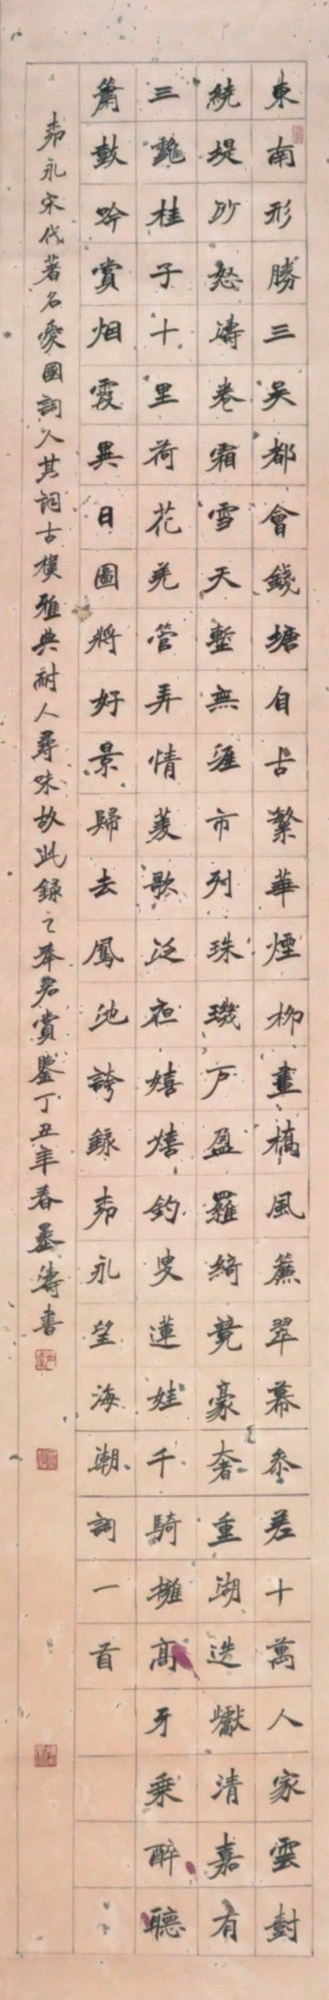 東南形勝三吳都會錢塘自古繁華煙柳畫橋風簾翠幕參差十萬人家雲樹
繞堤沙怒濤卷霜雪天塹無涯市列珠璣戶盈羅綺競豪奢重湖迭巘清嘉有
三秋桂子十里荷花羌管弄情菱歌泛夜嬉嬉釣叟蓮娃千騎擁高牙乘醉聽
簫鼓吟賞烟霞異日圖將好景歸去鳳池誇錄柳永望海潮詞一首
柳永宋代著名愛國詞人其詞古樸雅典耐人尋味故此錄之奉君賞鑒丁丑年春墨濤書